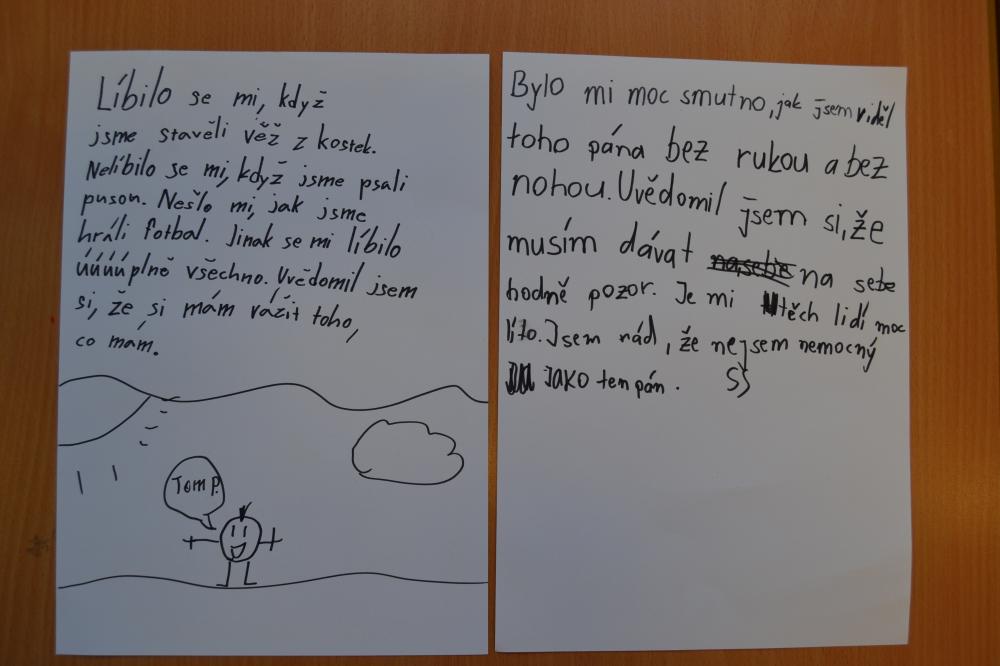 Líbilo se mi, když
jsme stavěli věž z kostek.
Nelíbilo se mi, když jsme psali
pusou. Nešlo mi, jak jsme
hráli fotbal. Jinak se mi líbilo
úúúúplně všechno. Uvědomil jsem
si, že si mám vážit toho,
co mám.
Tom P.
Bylo mi moc smutno, jak jsem viděl
toho pána bez rukou a bez
nohou. Uvědomil jsem si, že
musím dávat na sebe
hodně pozor. Je mi těch lidí moc
líto. Jsem rád, že nejsem nemocný
JAKO ten pán.